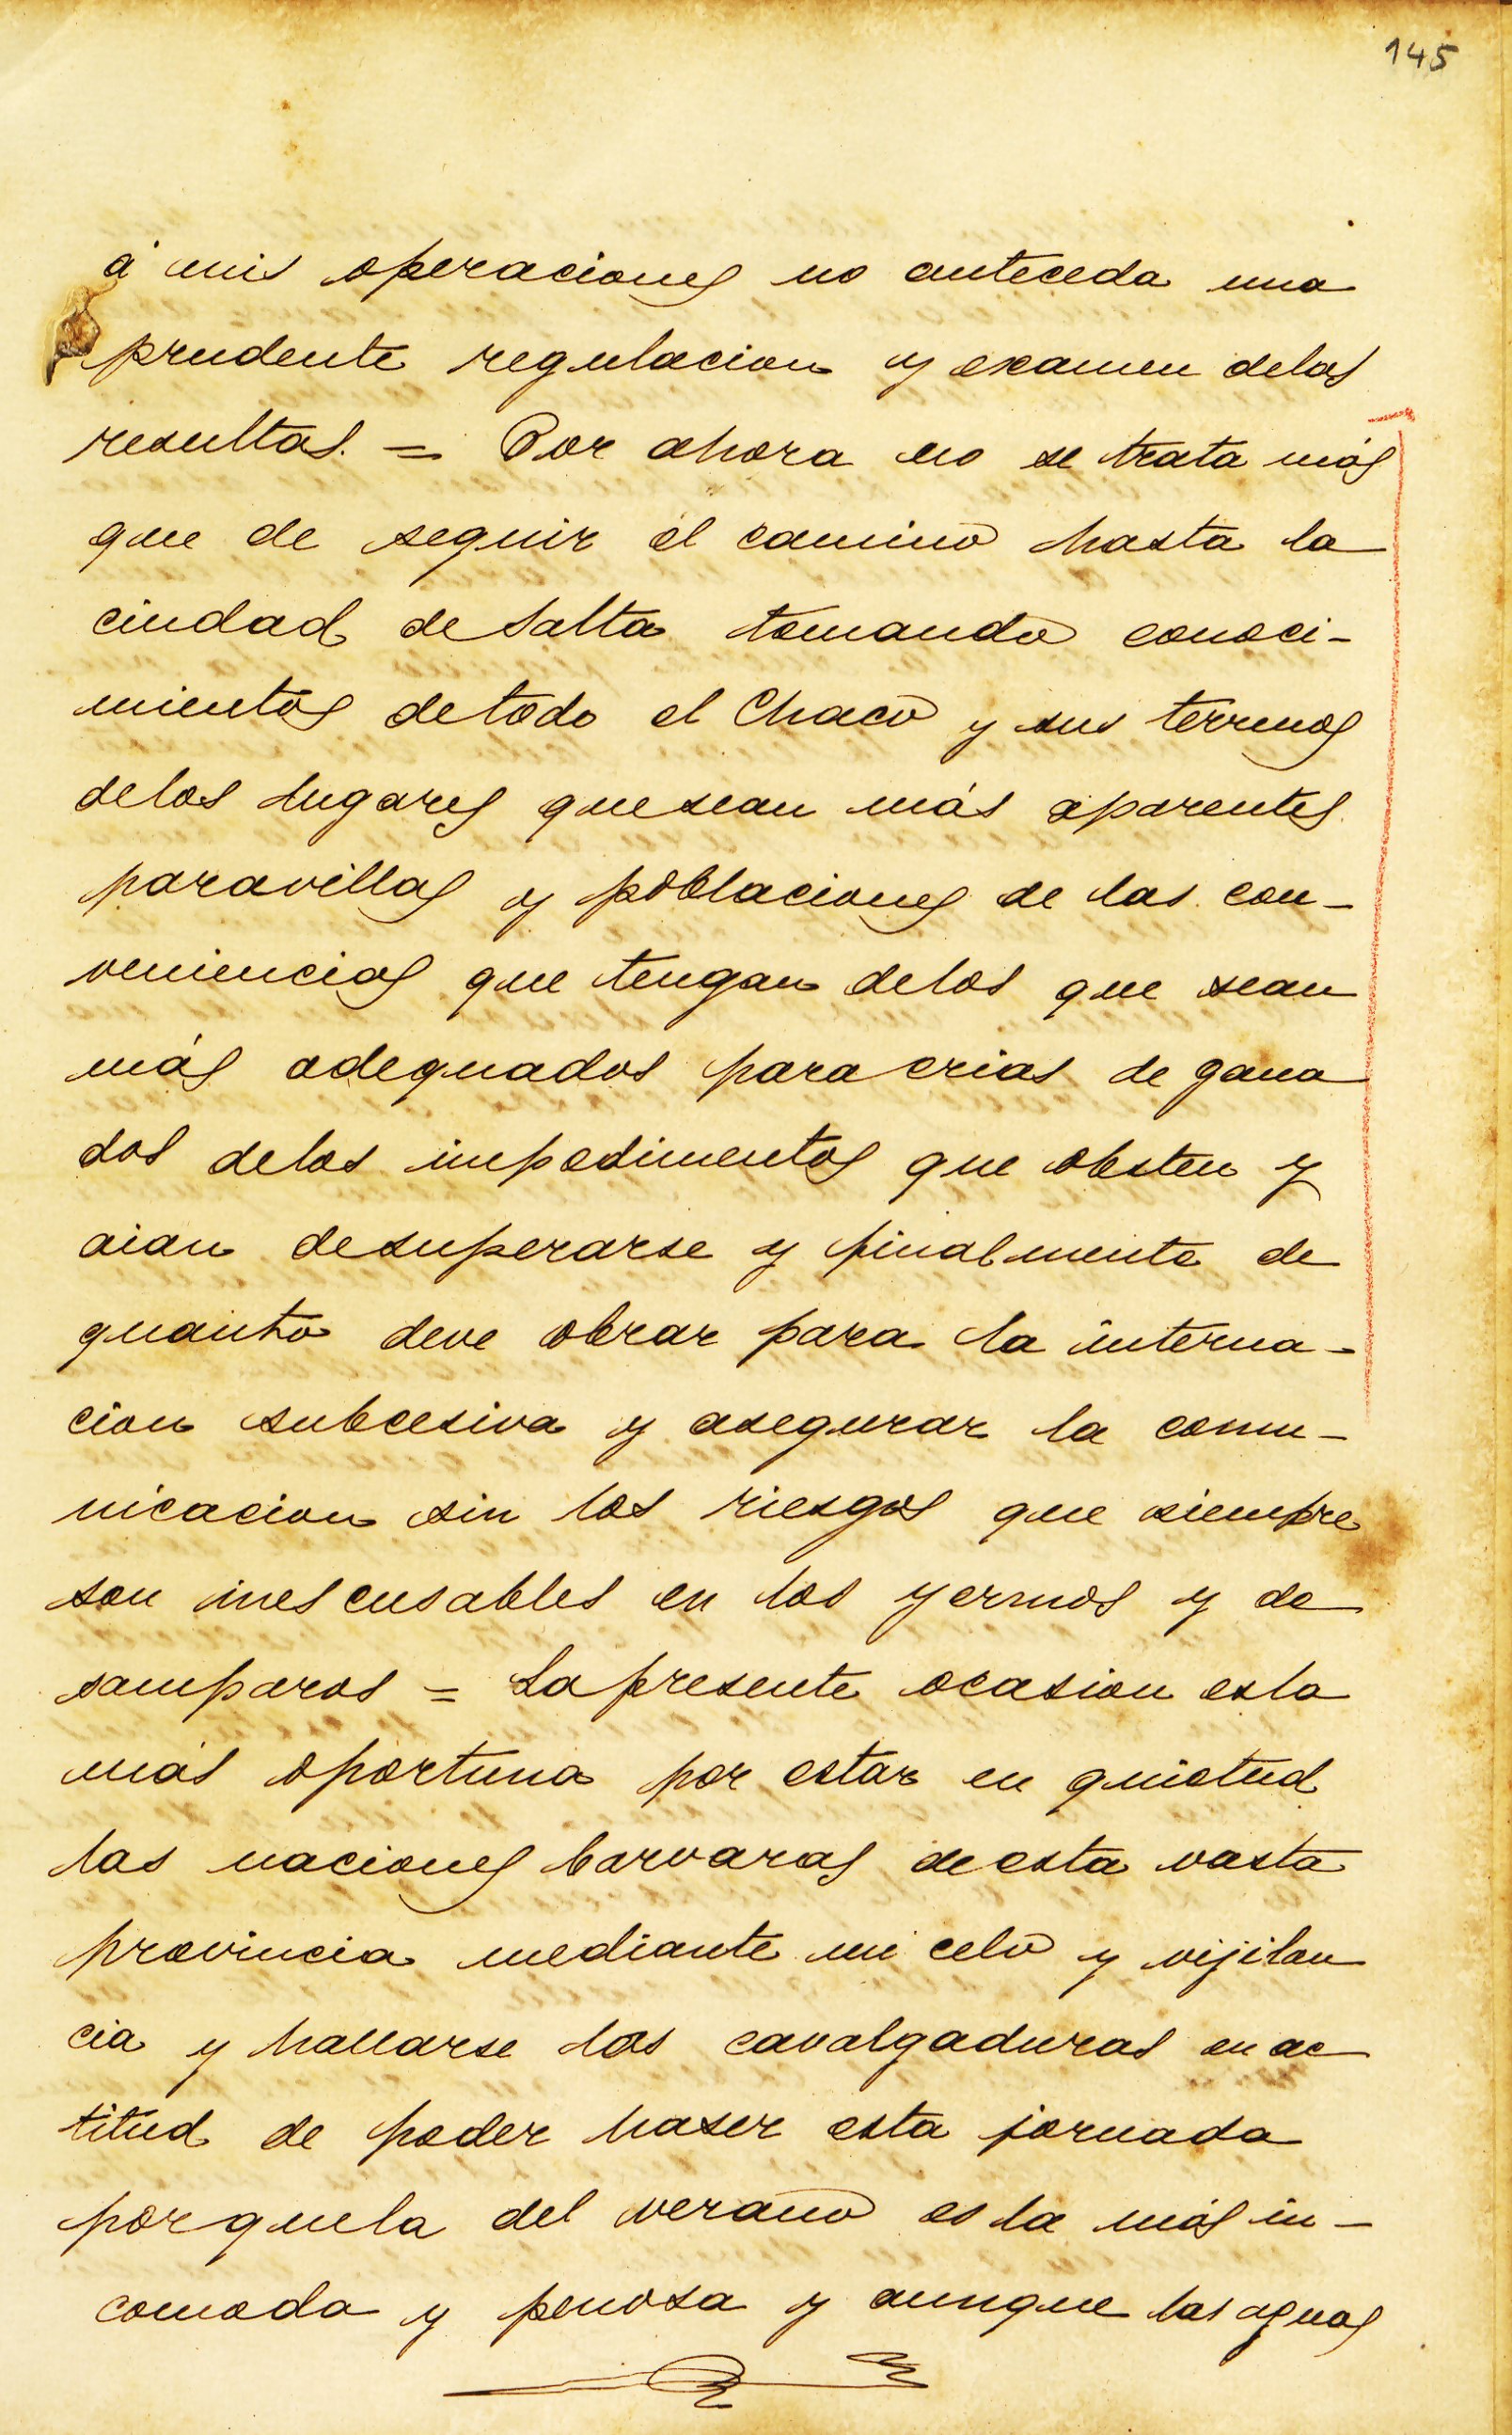 145
á mis operaciones no anteceda una
prudente regulacion y examen delas
resultas. = Por ahora no se trata más
que de seguir el camino hasta la
ciudad de Salta tomando conoci-
mientos detodo el Chaco y sus terrenos
delos lugares quesean más aparentes
paravillas y poblaciones de las con-
veniencias que tengan delos que sean
más adequados para crias de gana
dos delos impedimentos que obsten y
aian desuperarse y finalmente de
quanto deve obrar para la interna-
cion subcesiva y asegurar la comu-
nicacion sin los riesgos que siempre
son inescusables en los yermos y de
samparos = La presente ocasion esla
más oportuna por estar en quietud
las naciones barvaras deesta vasta
provincia mediante mi celo y vijilan
cia y hallarse las cavalgaduras en ac
titud de poder haser esta jornada
porquela del verano es la más in-
comoda y penosa y aunque las aguas